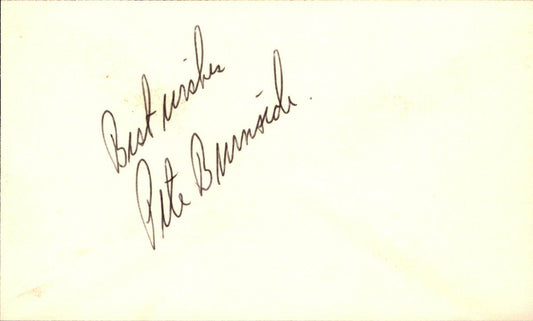 Best wishes
Pete Burnside.